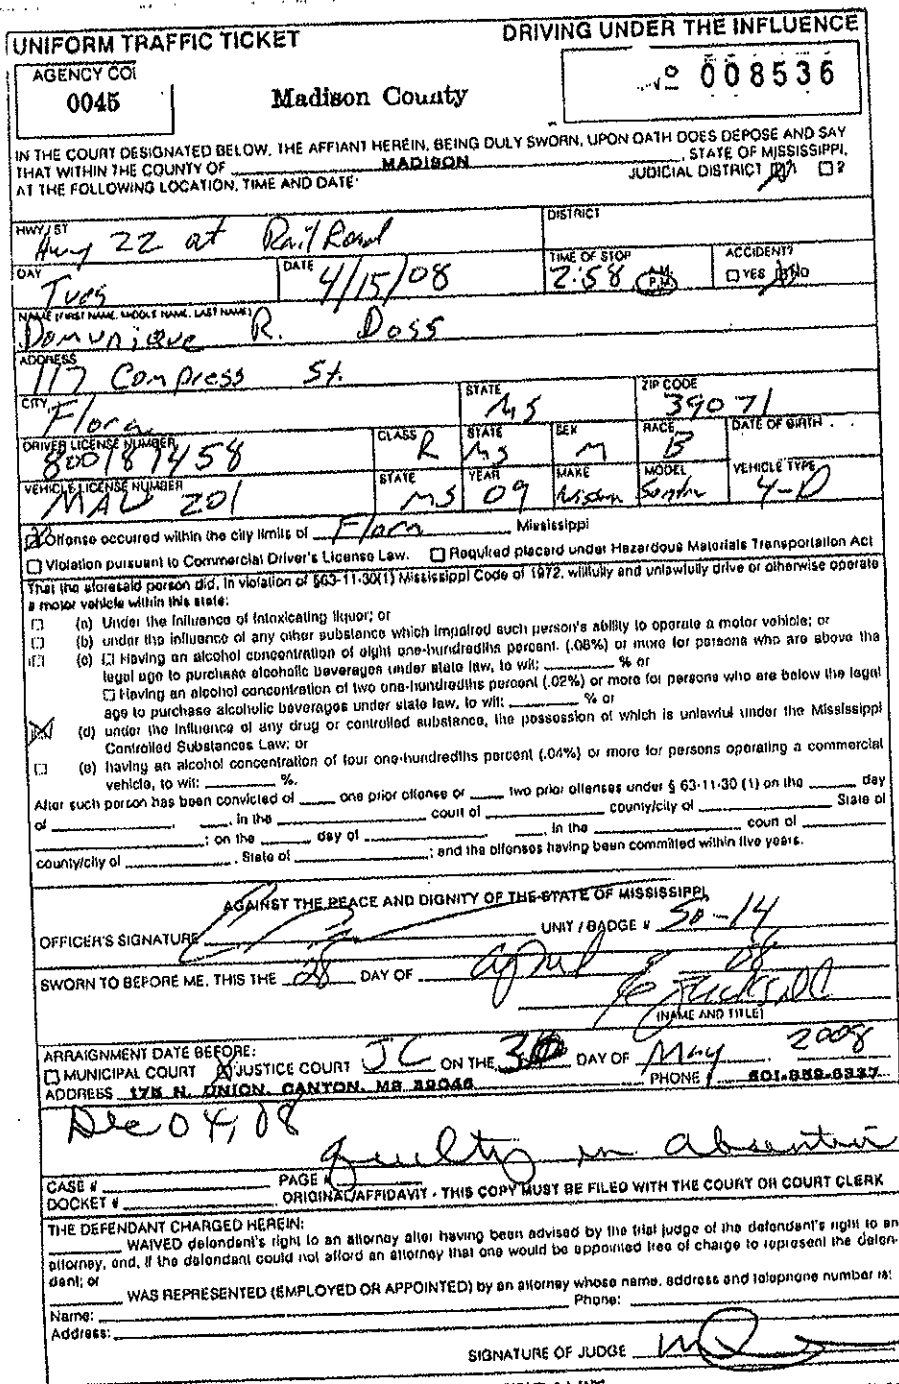 UNIFORM TRAFFIC TICKET
DRIVING UNDER THE INFLUENCE
AGENCY CO
0045
Madison County
№ 008536
IN THE COURT DESIGNATED BELOW, THE AFFIANT HEREIN, BEING DULY SWORN, UPON OATH DOES DEPOSE AND SAY
THAT WITHIN THE COUNTY OF MADISON, STATE OF MISSISSIPPI,
AT THE FOLLOWING LOCATION, TIME AND DATE: JUDICIAL DISTRICT ☒ 1 ☐ 2
HWY / ST DISTRICT
Hwy 22 at Rail Road
DAY DATE TIME OF STOP ACCIDENT?
Tues 4/15/08 2:58 A.M. P.M. ☐ YES ☒ NO
NAME (FIRST NAME, MIDDLE NAME, LAST NAME)
Domunique R. Doss
ADDRESS
117 Compress St.
CITY STATE ZIP CODE
Flora MS 39071
DRIVER LICENSE NUMBER CLASS STATE SEX RACE DATE OF BIRTH
800187458 R MS M B
VEHICLE LICENSE NUMBER STATE YEAR MAKE MODEL VEHICLE TYPE
MAU 201 MS 09 Nissan 4-D
☒ Offense occurred within the city limits of Flora Mississippi
☐ Violation pursuant to Commercial Driver's License Law. ☐ Required placard under Hazardous Materials Transportation Act
That the aforesaid person did, in violation of §63-11-30(1) Mississippi Code of 1972, willfully and unlawfully drive or otherwise operate
a motor vehicle within this state:
☐ (a) Under the influence of intoxicating liquor; or
☐ (b) under the influence of any other substance which impaired such person's ability to operate a motor vehicle; or
☐ (c) ☐ Having an alcohol concentration of eight one-hundredths percent. (.08%) or more for persons who are above the
legal age to purchase alcoholic beverages under state law, to wit: ______ % or
☐ Having an alcohol concentration of two one-hundredths percent (.02%) or more for persons who are below the legal
age to purchase alcoholic beverages under state law, to wit: ______ % or
☒ (d) under the influence of any drug or controlled substance, the possession of which is unlawful under the Mississippi
Controlled Substances Law; or
☐ (e) having an alcohol concentration of four one-hundredths percent (.04%) or more for persons operating a commercial
vehicle, to wit: ______ %.
After such person has been convicted of ____ one prior offense or ____ two prior offenses under § 63-11-30 (1) on the ____ day
of ______, ____, in the ______ court of ______ county/city of ______ State of
______; on the ____ day of ______ ____, in the ______ court of
county/city of ______, State of ______; and the offenses having been committed within five years.
AGAINST THE PEACE AND DIGNITY OF THE STATE OF MISSISSIPPI.
OFFICER'S SIGNATURE UNIT / BADGE # 50-14
SWORN TO BEFORE ME, THIS THE 28 DAY OF April 08
(NAME AND TITLE)
ARRAIGNMENT DATE BEFORE:
☐ MUNICIPAL COURT ☒ JUSTICE COURT JC ON THE 30 DAY OF May 2008
ADDRESS 175 N. UNION, CANTON, MS 39046 PHONE # 601-859-6337
Dec 04, 08
guilty in absentia
CASE # ______ PAGE # ______
DOCKET # ______ ORIGINAL/AFFIDAVIT - THIS COPY MUST BE FILED WITH THE COURT OR COURT CLERK
THE DEFENDANT CHARGED HEREIN:
______ WAIVED defendant's right to an attorney after having been advised by the trial judge of the defendant's right to an
attorney, and, if the defendant could not afford an attorney that one would be appointed free of charge to represent the defen-
dant; or
______ WAS REPRESENTED (EMPLOYED OR APPOINTED) by an attorney whose name, address and telephone number is:
Name: ______ Phone: ______
Address: ______
SIGNATURE OF JUDGE